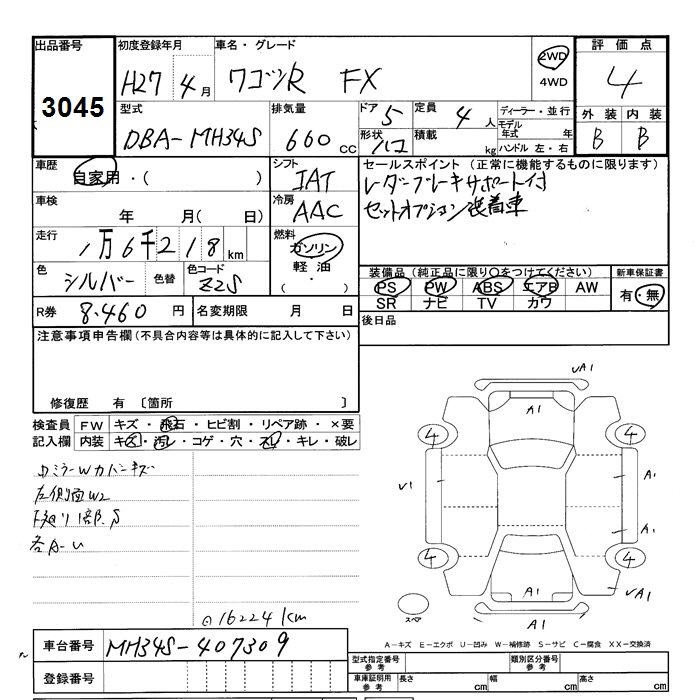 出品番号 初度登録年月 車名・グレード 評価点
3045 H27 4月 ワゴンR FX 2WD 4WD 4
型式 排気量 ドア 5 定員 4人 ディーラー・並行 外装 内装
DBA-MH34S 660cc 形状 ハコ 積載 kg モデル年式 年 ハンドル 左・右 B B
車歴 自家用・( ) シフト IAT セールスポイント(正常に機能するものに限ります)
車検 年 月( 日) 冷房 AAC レーダーブレーキサポート付
セットオプション装着車
走行 1万6千218km 燃料 ガソリン 軽油 ( ・ )
色 シルバー 色替 色コード Z2S 装備品(純正品に限り○をつけてください) 新車保証書
PS PW ABS エアB AW 有・無
SR ナビ TV カワ
R券 8.460円 名変期限 月 日 後日品
注意事項申告欄(不具合内容等は具体的に記入して下さい)
修復歴 有 〔箇所 〕
検査員 FW キズ・飛石・ヒビ割・リペア跡・×要
記入欄 内装 キズ・汚レ・コゲ・穴・スレ・キレ・破レ
左側面W2
各A-U
16224km
√A1
A1
4 4
V1 A1
A1
4 4
A1 √A1
スペア A1
A-キズ E-エクボ U-凹み W-補修跡 S-サビ C-腐食 XX-交換済
車台番号 MH34S-407309
登録番号
型式指定番号 参考 類別区分番号 参考
車庫証明用 参考 長さ cm 幅 cm 高さ cm